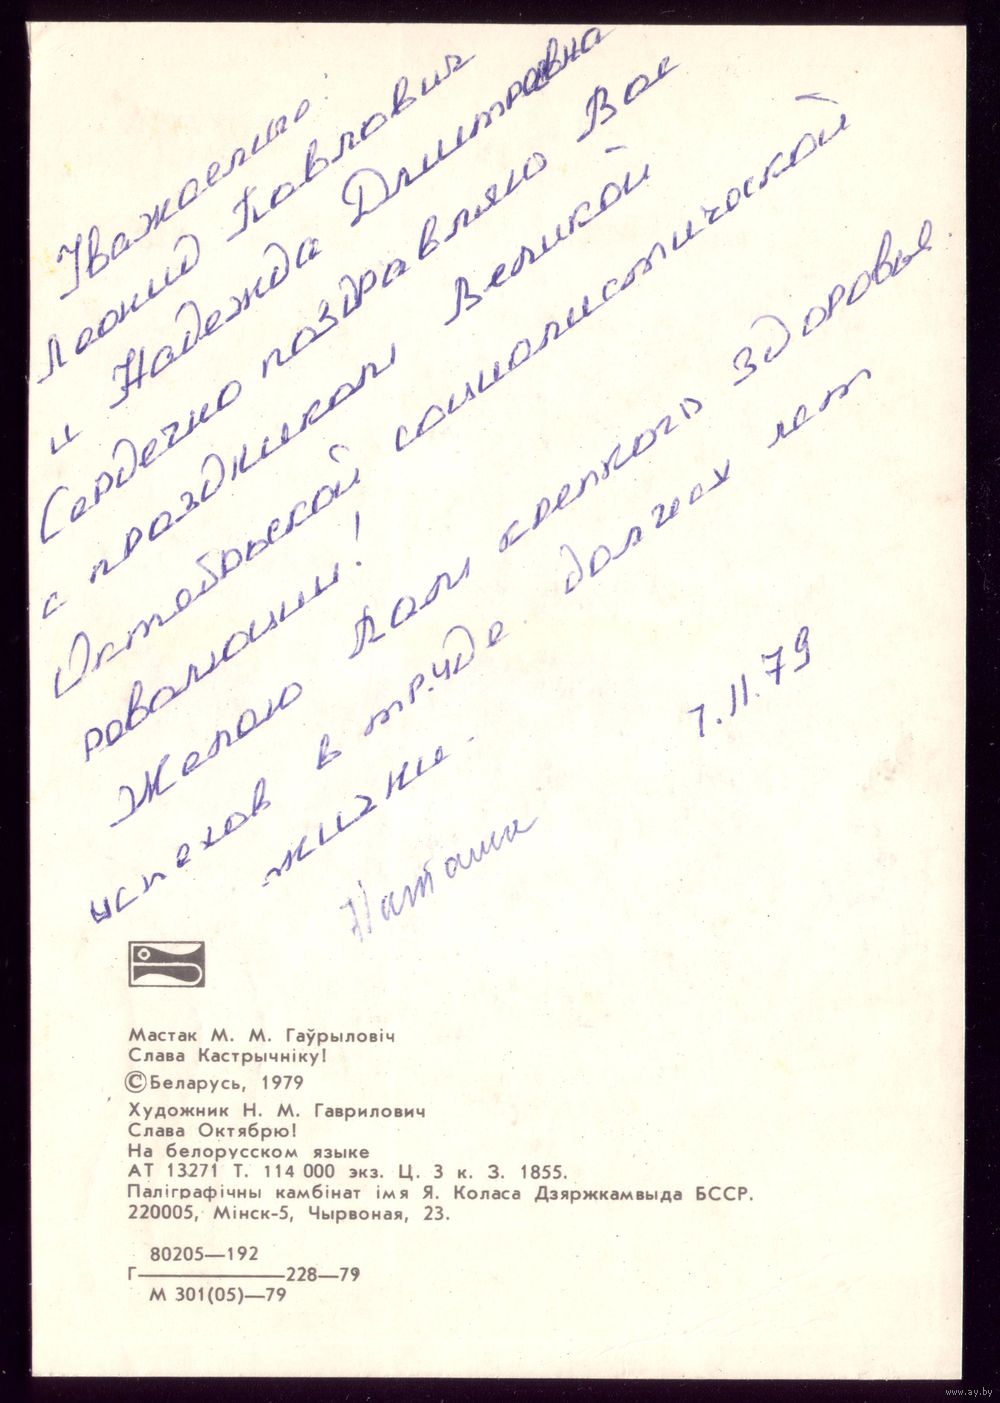 Уважаемые!
Леонид Павлович
и Надежда Дмитровна
Сердечно поздравляю Вас
с праздником Великой
Октябрьской социалистической
революции!
Желаю Вам крепкого здоровья.
успехов в труде. долгих лет
жизни.
7.11.79
Наташа
Мастак М. М. Гаўрыловіч
Слава Кастрычніку!
©Беларусь, 1979
Художник Н. М. Гаврилович
Слава Октябрю!
На белорусском языке
АТ 13271 Т. 114 000 экз. Ц. 3 к. З. 1855.
Паліграфічны камбінат імя Я. Коласа Дзяржкамвыда БССР.
220005, Мінск-5, Чырвоная, 23.
80205—192
Г————228—79
М 301(05)—79
www.ay.by